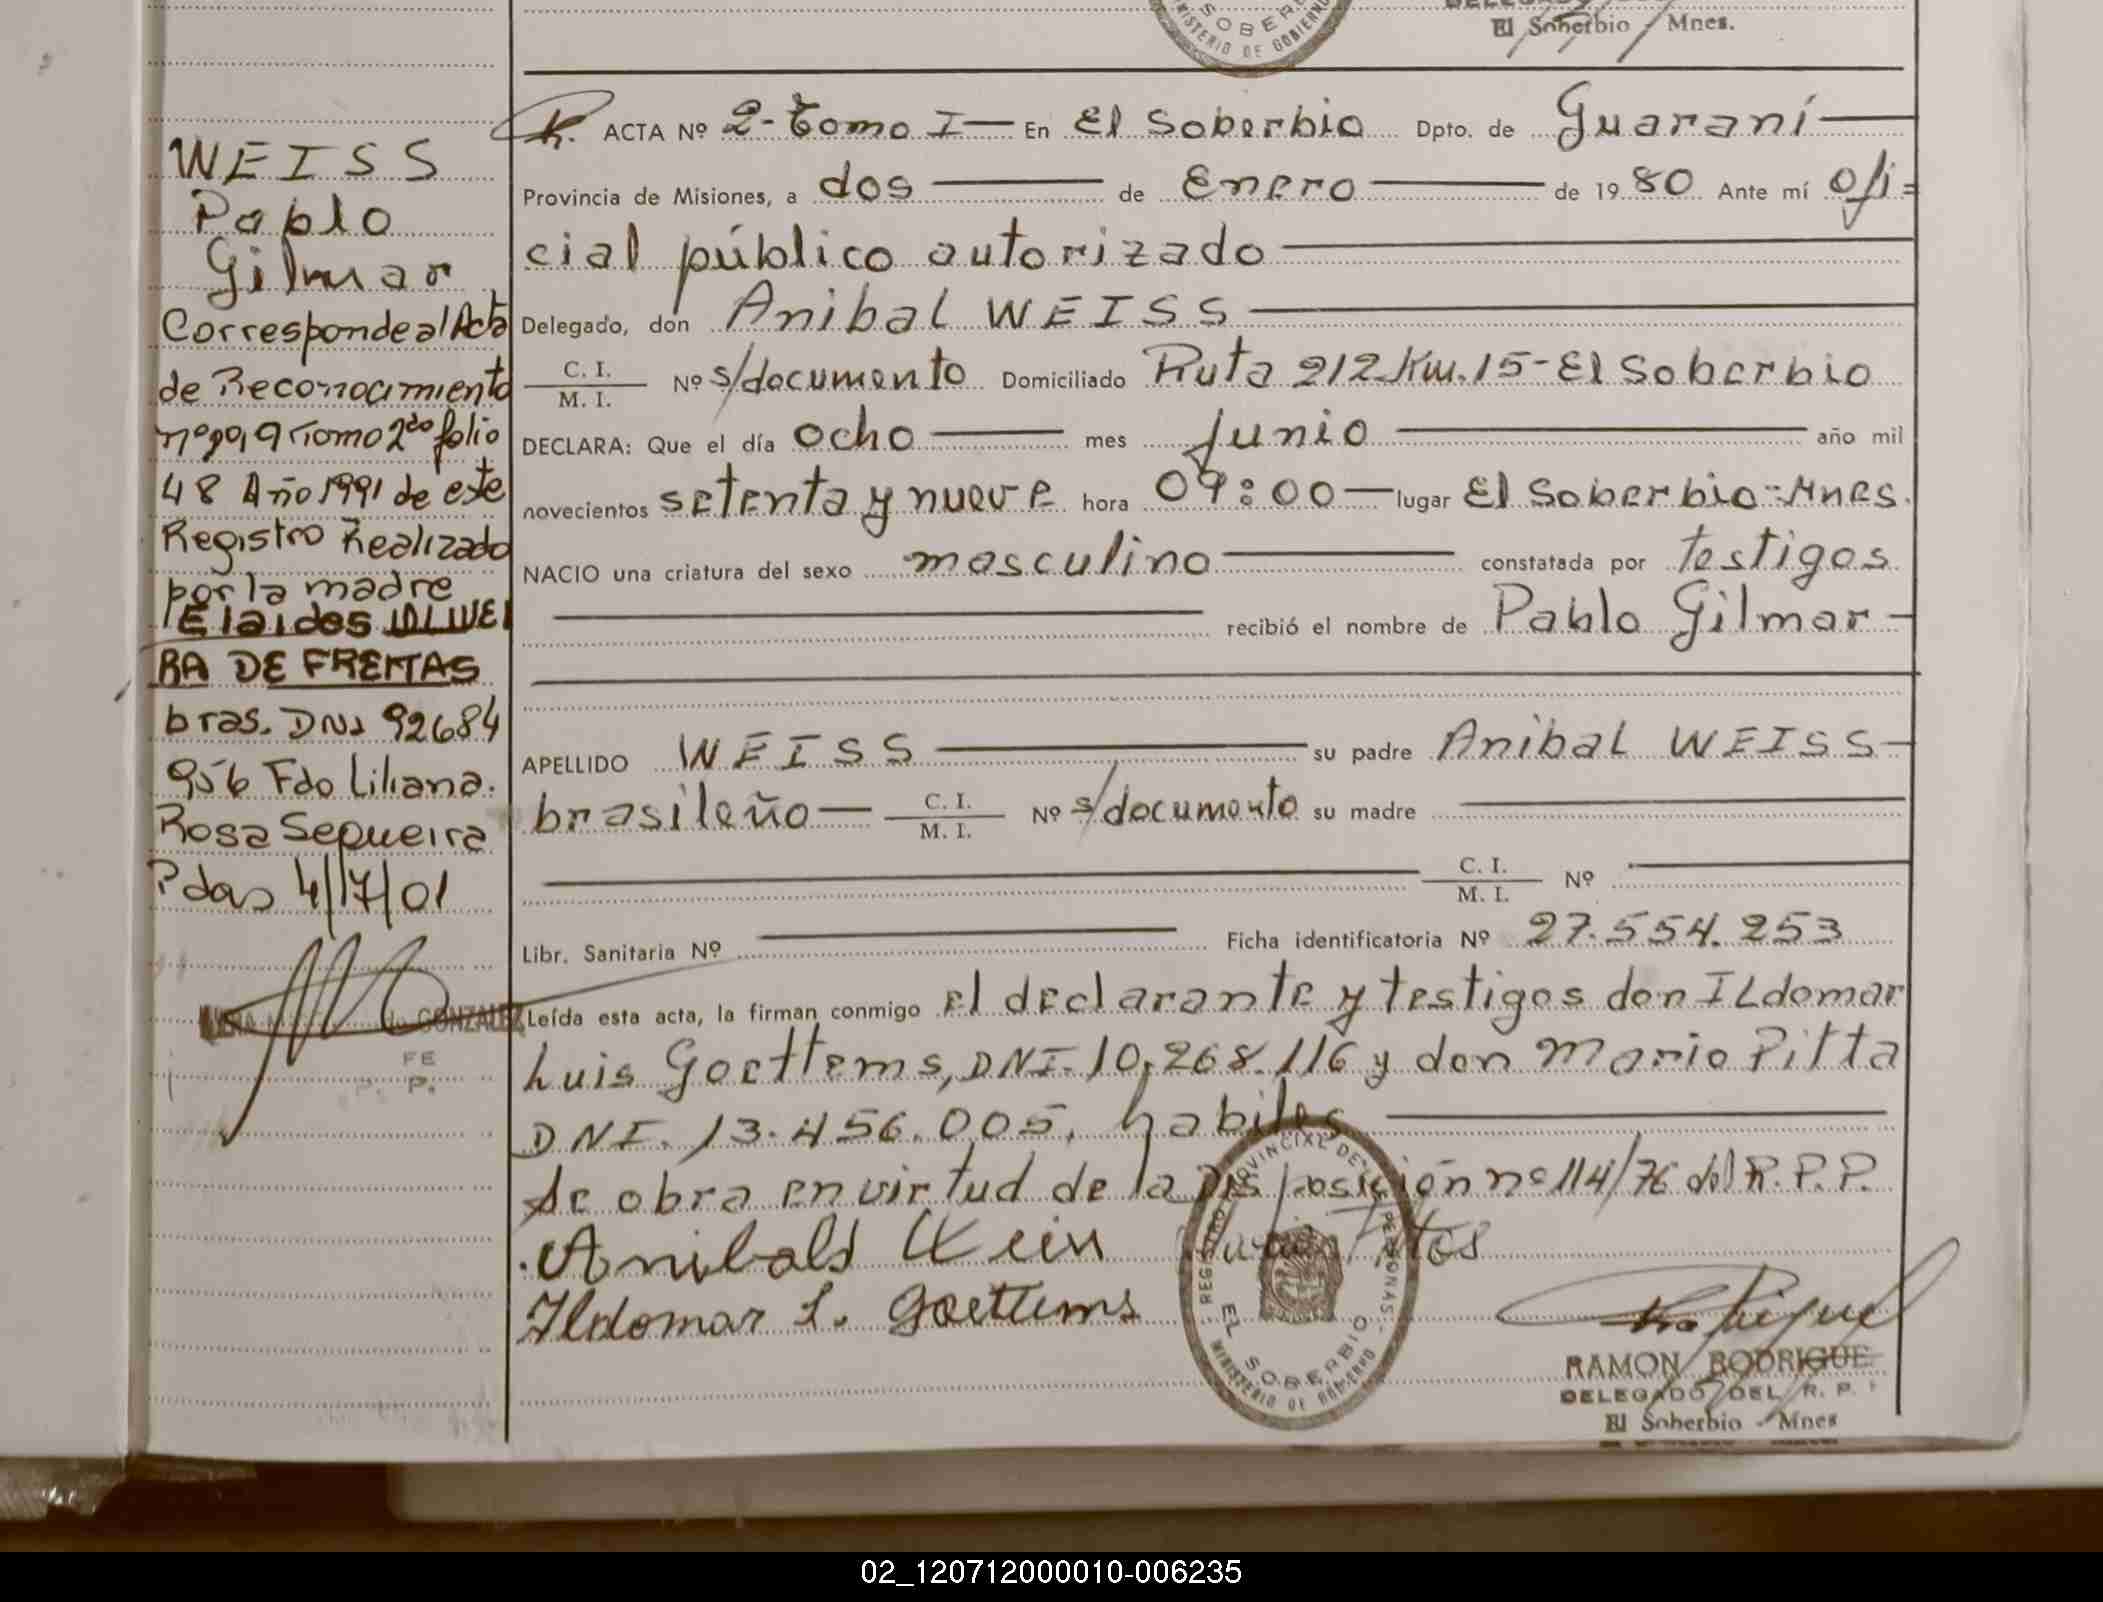 SOBER
MINISTERIO DE GOBIERNO
El Soberbio Mnes.
WEISS
Pablo
Gilmar
Corresponde al Acta
de Reconocimiento
Tomo 2do folio
48 Año 1991 de este
Registro Realizado
por la madre
Elaides OLIVEI
RA DE FREITAS
bras. DNI 92684
956 Fdo Liliana.
Rosa Sequeira
Pdas 4/17/01
GONZALEZ
FE
P. P.
R. ACTA Nº 2- Tomo I — En El Soberbio Dpto. de Guaraní
Provincia de Misiones, a dos de Enero de 1980 Ante mí ofi=
cial público autorizado
Delegado, don Anibal WEISS
C. I.
M. I. Nº s/documento Domiciliado Ruta 212 Km. 15 - El Soberbio
DECLARA: Que el día ocho mes Junio año mil
novecientos setenta y nueve hora 09:00 — lugar El Soberbio - Mnes.
NACIO una criatura del sexo masculino constatada por testigos
recibió el nombre de Pablo Gilmar -
APELLIDO WEISS su padre Anibal WEISS
brasileño — C. I.
M. I. Nº s/documento su madre
C. I.
M. I. Nº
Libr. Sanitaria Nº Ficha identificatoria Nº 27.554.253
Leída esta acta, la firman conmigo el declarante y testigos don ILdomar
Luis Goettems, DNI. 10.268.116 y don Mario Pitta
DNI. 13.456.005, habiles
Se obra en virtud de la Disposición nº 114/76 del R.P.P.
Anibald Wein
Ildomar L. Goettems
REGISTRO PROVINCIAL DE LAS PERSONAS
EL SOBERBIO
MINISTERIO DE GOBIERNO
RAMON RODRIGUE
DELEGADO DEL R. P.
El Soberbio - Mnes
02_120712000010-006235